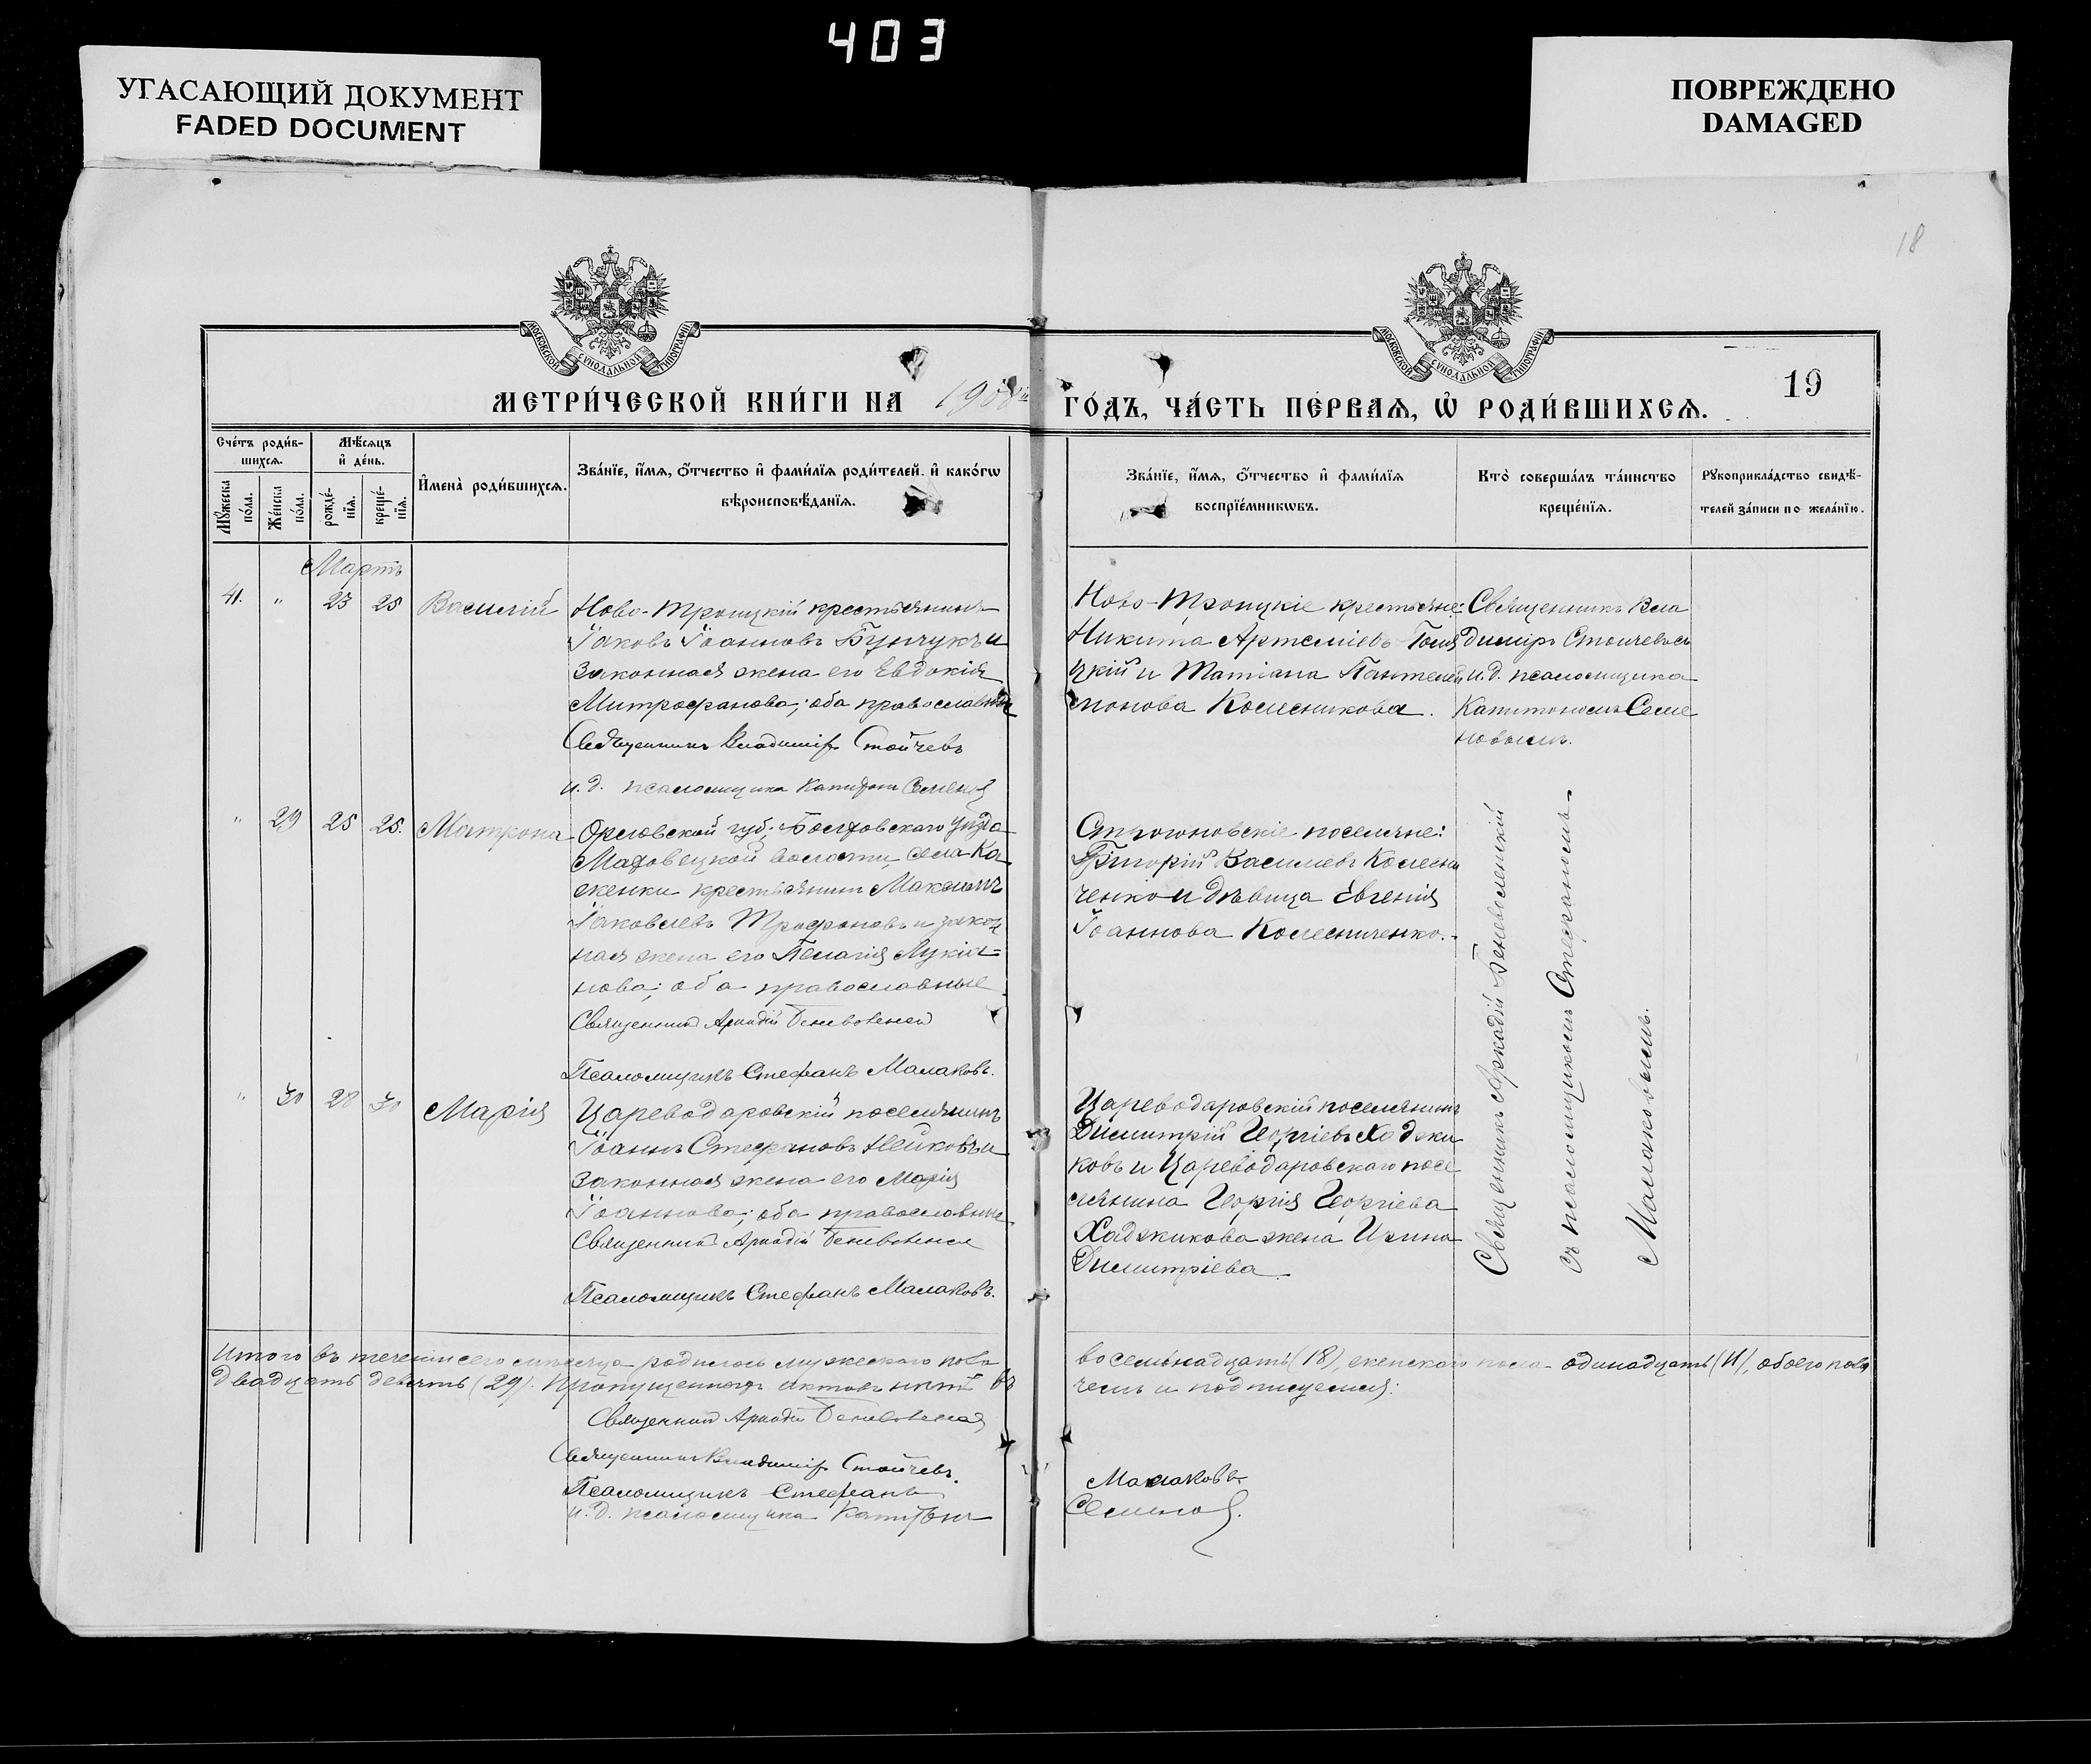 403
УГАСАЮЩИЙ ДОКУМЕНТ
FADED DOCUMENT
ПОВРЕЖДЕНО
DAMAGED
18
МОСКОВСКОЙ СѴНОДАЛЬНОЙ ТИПОГРАФІИ
МОСКОВСКОЙ СѴНОДАЛЬНОЙ ТИПОГРАФІИ
МЕТРИ́ЧЕСКОЙ КНИ́ГИ НА 1908й
ГО́ДЪ, ЧА́СТЬ ПЕ́РВАѦ, Ѽ РОДИ́ВШИХСѦ.
19
Сче́тъ роди́в-
шихсѧ.
Мꙋжеска по́ла.
Же́нска по́ла.
Мѣ́сѧцъ
и҆ де́нь.
рожде́-
нїѧ.
креще́-
нїѧ.
И҆мена̀ роди́вшихсѧ.
Зва́нїе, и҆́мѧ, ѻ҆́тчество и҆ фами́лїѧ роди́телей. и҆ како́гѡ
вѣроисповѣ́данїѧ.
Зва́нїе, и҆́мѧ, ѻ҆́тчество и҆ фами́лїѧ
воспрїе́мникѡвъ.
Кто̀ соверша́лъ та́инство
креще́нїѧ.
Рꙋкоприкла́дство свидѣ́-
телей за́писи по жела́нїю.
Мартъ
41. " 23 25 Василій
Ново-Троицкій крестьянинъ
Іаковъ Іоанновъ Бунчукъ и
законная жена его Евдокія
Митрофанова; оба православные
Священникъ Владиміръ Стойчевъ
и.д. псаломщика Капитонъ Семеновъ
Ново-Троицкіе крестьяне:
Никита Артеміевъ
цкій и Татіана Пантелей
монова Колесникова.
Священникъ Вла
диміръ Стойчевъ съ
и.д. псаломщика
Капитономъ Семе
новымъ.
" 29 25 25. Матрона
Орловской губ., Болховскаго уѣзда
волости, села Ка
женки крестьянинъ Максимъ
Іаковлевъ Трофоновъ и закон
ная жена его Пелагія Лукіа=
нова; оба православные
Священникъ Аркадій Беневоленскій
Псаломщикъ Стефанъ Малаковъ.
Строгоновскіе поселяне:
Григорій Василіевъ Колесни
ченко и дѣвица Евгенія
Іоаннова Колесниченко.
Священникъ Аркадій Беневоленскій
съ псаломщикомъ Стефаномъ
Малаковымъ.
" 30 28 30 Марія
Цареводаровскій поселянинъ
Іоаннъ Стефановъ Нейковъ и
законная жена его Марія
Іоаннова; оба православные
Священникъ Аркадій Беневоленскій
Псаломщикъ Стефанъ Малаковъ.
Цареводаровскій поселянинъ
Димитрій Георгіевъ Хаджи
ковъ и Цареводаровскаго посе
лянина Георгія Георгіева
Хаджикова жена Ирина
Димитріева.
Итого въ теченіи сего мѣсяца родилось мужескаго пола
восемьнадцать (18), женскаго пола - одинадцать (11), обоего пола
двадцать девять (29). Пропущенныхъ актовъ нѣтъ въ
чемъ и подписуемся:
Священникъ Аркадій Беневоленскій
Священникъ Владиміръ Стойчевъ.
Псаломщикъ Стефанъ
Малаковъ
и.д. псаломщика Капитонъ
Семеновъ.